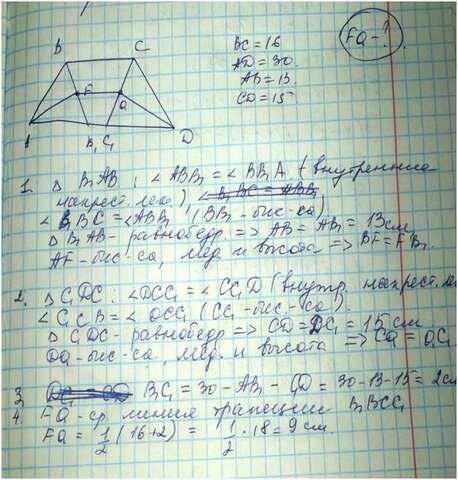 BC = 16
AD = 30.
AB = 13.
CD = 15
FQ - ?
B C
F Q
A B₁ C₁ D
1. △ B₁AB : ∠ABB₁ = ∠BB₁A. (внутренние
накрест. леж.),
∠B₁BC = ∠ABB₁ (BB₁ - бис-са)
△ B₁AB - равнобедр. => AB = AB₁ = 13 см
AF - бис-са, мед и высота => BF = FB₁
2. △ C₁DC : ∠DCC₁ = ∠CC₁D (внутр. накрест. ле
∠C₁CB = ∠DCC₁ (CC₁ - бис-са).
△ C₁DC - равнобедр => CD = DC₁ = 15 см
DQ - бис-са, мед. и высота => CQ = QC₁
3. B₁C₁ = 30 - AB₁ - CD = 30 - 13 - 15 = 2 см
4. FQ - ср. линия трапеции B₁BCC₁
FQ = 1/2 (16+2) = 1/2 · 18 = 9 см.